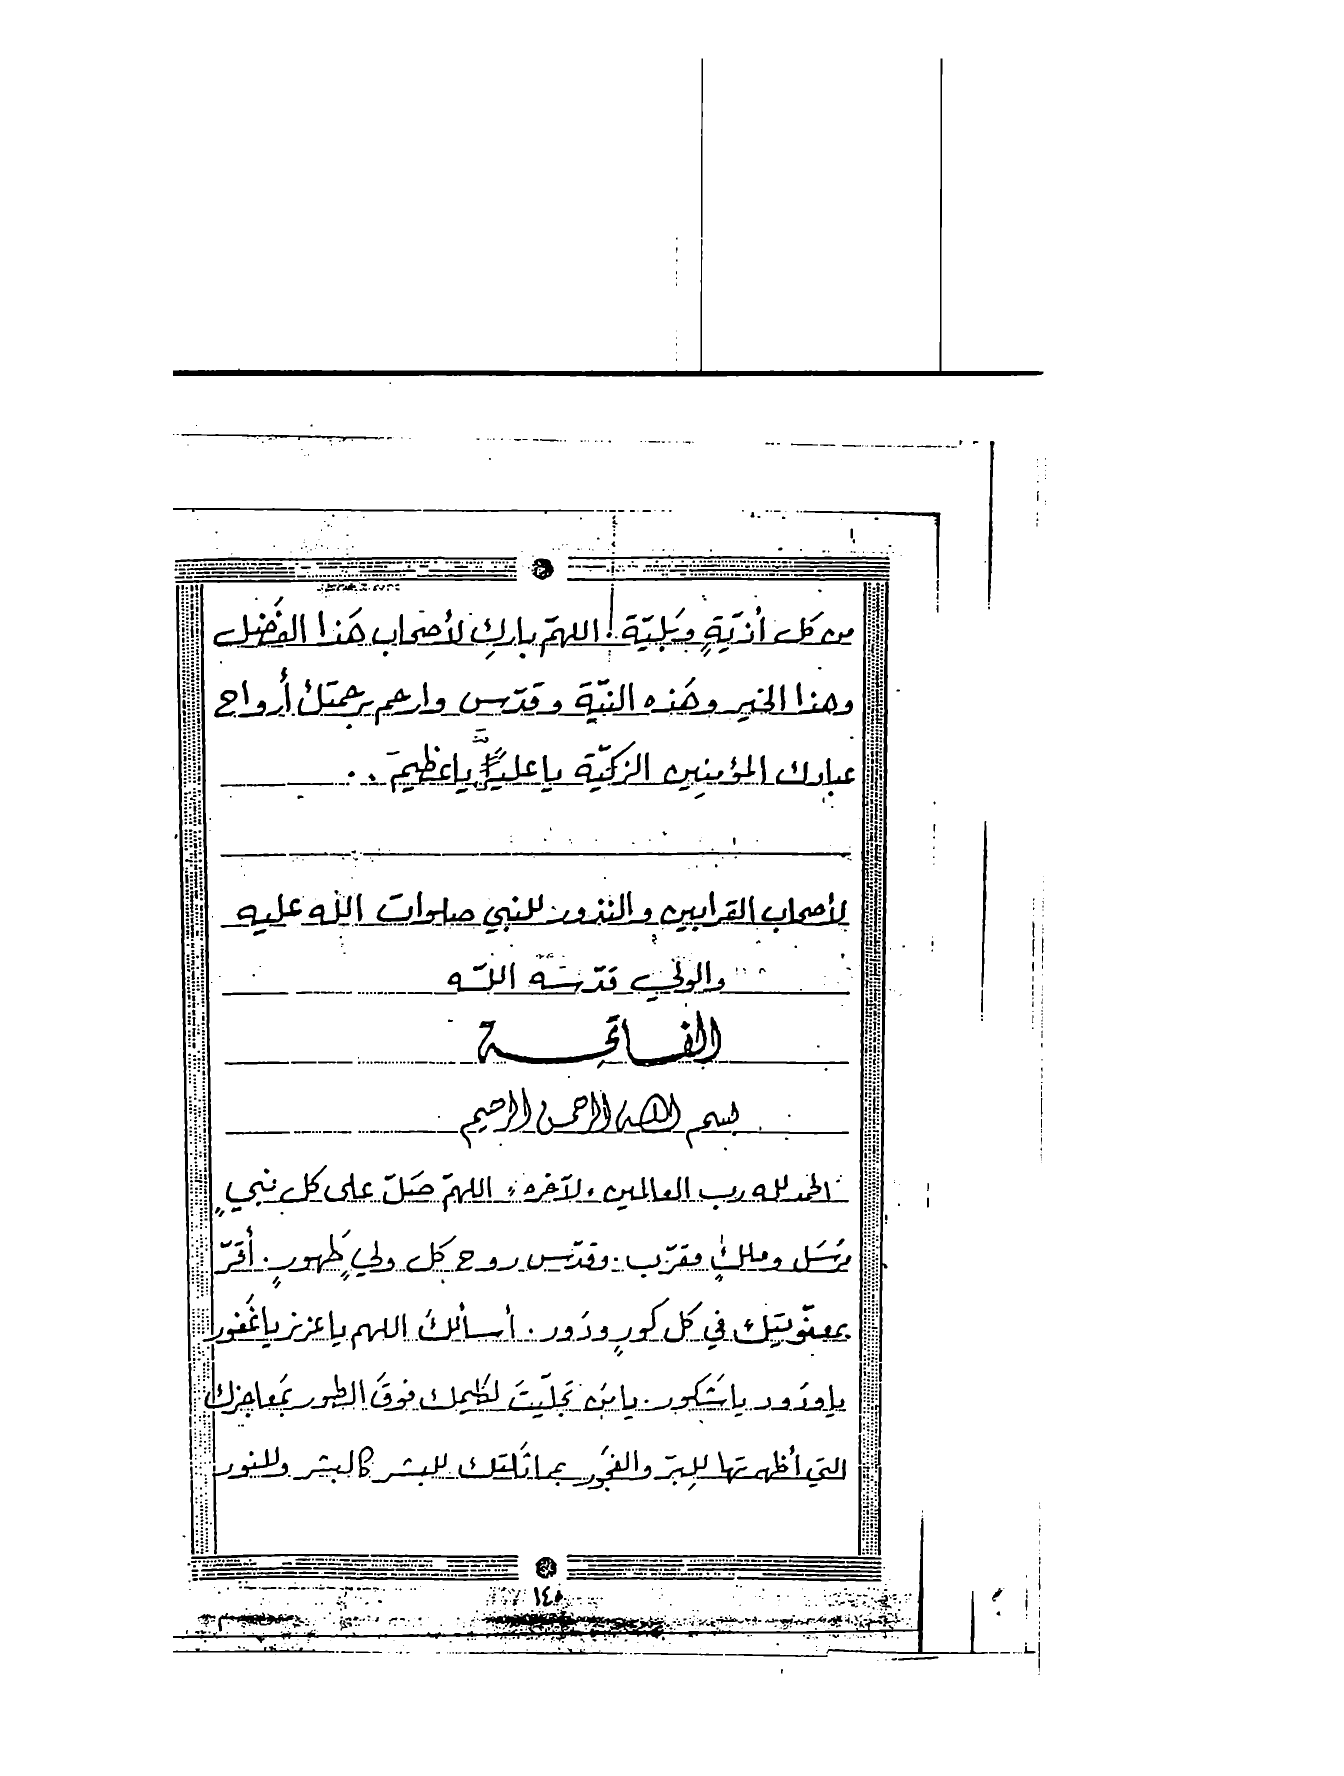 من كل أذيّةٍ وبَليّة! اللهمّ بارك لأصحاب هَذا الفَضل
وهذا الخير وهَذه النيّة وقَدّس وارحم برحمتك أرواح
عبادك المؤمنين الزكيّة يا علي يا عظيم..
لأصحاب القرابين والنذور للنبي صلوات اللّه عليه
والولي قدّسَه اللّه
الفاتحة
بسم الله الرحمن الرحيم
الحمد لله رب العالمين، لآخره، اللهمّ صَلّ على كل نبيٍ
مرسَل وملكٍ مقرّب. وقدّس روح كل وليٍ طَهورٍ. أقرّ
بمعنويتك في كل كورٍ ودَور. أسألكَ اللهم يا عزيز يا غَفور
يا ودَود يا شَكور. يا مَن تجلّيتَ لكليمك فوقَ الطور بمَعاجزك
التي أظهرتها للبِرّ والفجَور بمماثَلتك للبشر كالبشر وللنور
١٤٥